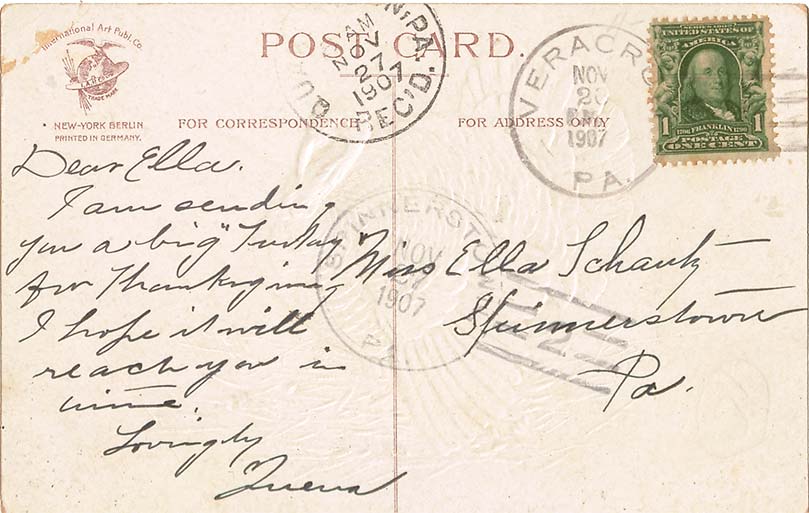 International Art Publ. Co.
TRADE MARK
NEW-YORK BERLIN
PRINTED IN GERMANY.
POST CARD.
FOR CORRESPONDENCE
FOR ADDRESS ONLY
N, PA.
AM
NOV
27
1907
REC'D.
VERACRU
NOV
26
1907
PA.
SERIES 1902
UNITED STATES OF
AMERICA
1 FRANKLIN 1
POSTAGE
ONE CENT
Dear Ella.
I am sending
you a big Turkey
for Thanksgiving
I hope it will
reach you in
time.
Lovingly
SPINNERSTOWN
NOV
27
1907
PA.
Miss Ella Schantz
Spinnerstown
Pa.